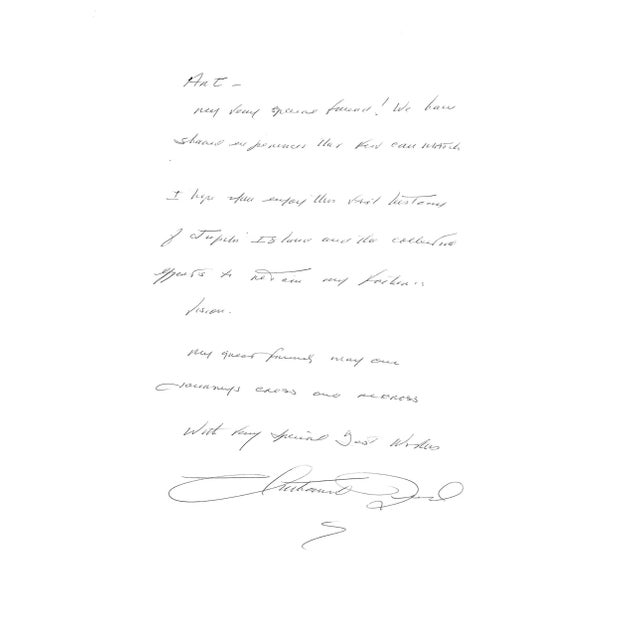 Art -
My very special friend! We have
shared experiences that few can match
I hope you enjoy this brief history
of Jupiter Island and the collective
efforts to retain my father's
vision.
My great friend, may our
journeys cross and recross
With very special Best Wishes